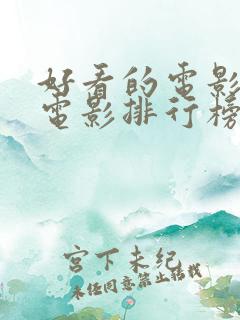 好看的電影
電影排行榜
宮下未紀
未经同意禁止转载